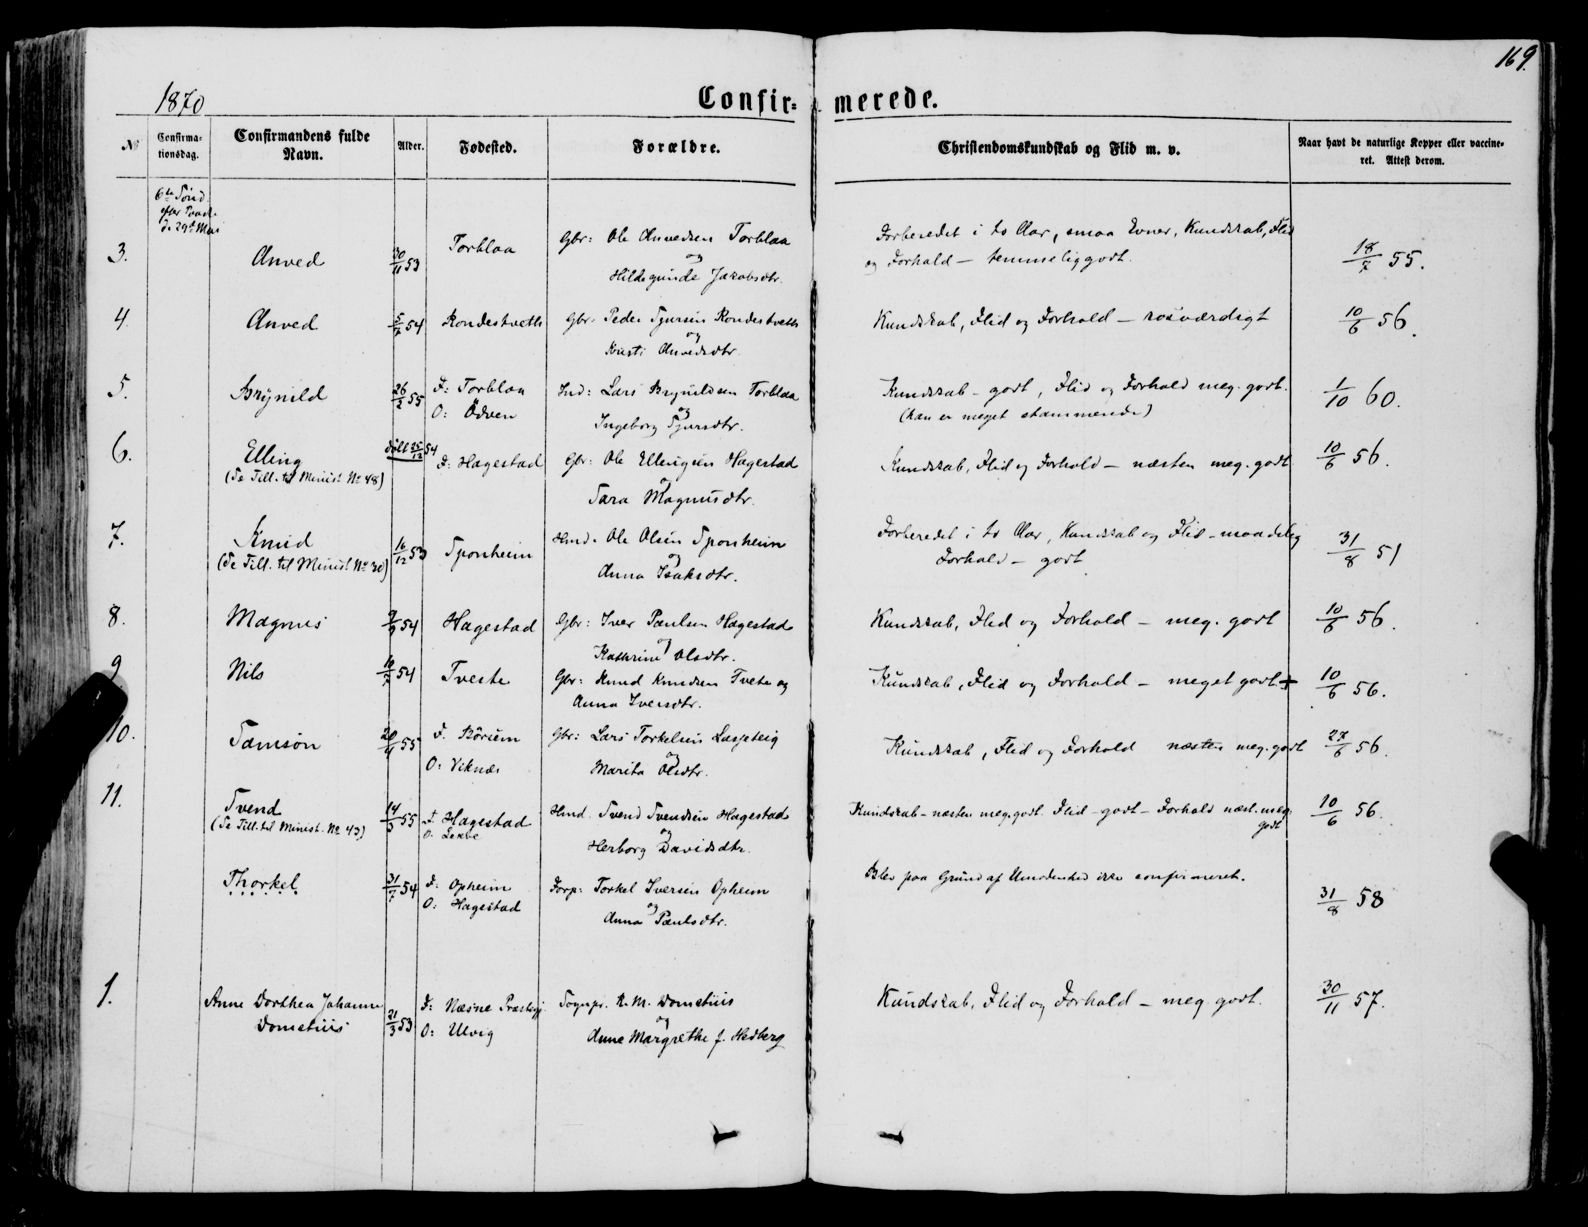 169.
1870
Confir- merede.
№ Confirma- tionsdag. Confirmandens fulde Navn. Alder. Fødested. Forældre. Christendomskundskab og Flid m. v. Naar havt de naturlige Kopper eller vaccine- ret. Attest derom.
6te Sønd.
efter Paaske
d. 29de Mai
3. Anved 30/11 53 Torblaa Gbr: Ole Anvedsen Torblaa Forberedet i to Aar, smaa Evner, Kundskab, Flid 18/7 55.
og Hildegunde Jacobsdtr. og Forhold – temmelig godt.
4. Anved 5/7 54 Rondestvett Gbr. Peder Sjursen Rondestvett Kundskab, Flid og Forhold – rosværdigt 10/6 56.
og Kristi Anvedsdtr.
5. Brynild 26/2 55 F: Torblaa Ind: Lars Brynildsen Torblaa Kundskab – godt, Flid og Forhold meg. godt. 1/10 60.
O: Ödven og Ingeborg Sjursdtr. (han er meget stammende)
6. Elling døbt 25/12 54 F: Hagestad Gbr: Ole Ellingsen Hagestad Kundskab, Flid og Forhold – næsten meg. godt 10/6 56.
(Se Till. til Minist. No 48) og Sara Magnusdtr.
7. Knud 16/12 53 Sponheim Hmd. Ole Olsen Sponheim Forberedet i to Aar, Kundskab og Flid – maadelig 31/8 51
(Se Till. til Minist. No 30) og Anna Isaksdtr. Forhold – godt
8. Magnus 9/9 54 Hagestad Gbr: Iver Paulsen Hagestad Kundskab, Flid og Forhold – meg. godt 10/6 56.
og Kathrine Olsdtr.
9 Nils 10/7 54 Tveste Gbr: Knud Knudsen Tvete og Kundskab, Flid og Forhold – meget godt + 10/6 56.
Anna Iversdtr.
10. Samson 20/4 55 F. Börsem Gbr: Lars Torkelsen Kundskab, Flid og Forhold næsten meg. godt 27/6 56.
O: Viknæs og Marita Olsdtr.
11. Svend 14/3 55 F Hagestad Hmd. Svend Svendsen Hagestad Kundskab – næsten meg. godt. Flid – godt – Forhold næst. meg. 10/6 56.
(Se Till. til Minist. No 43) O. Lekve og Herborg Davidsdtr. godt
Thorkel 31/7 54 F: Opheim Forp: Torkel Iversen Opheim Blev paa Grund af Umodenhed ikke confirmeret. 31/8 58
O: Hagestad og Anna Paulsdtr.
1. Anne Dorthea Johanne 21/3 53 F: Næsne Præstegj. Sognpr. N. M. Dometius Kundskab, Flid og Forhold – meg. godt. 30/11 57.
Dometius O: Ulvig og Anne Margrethe f. Hedberg